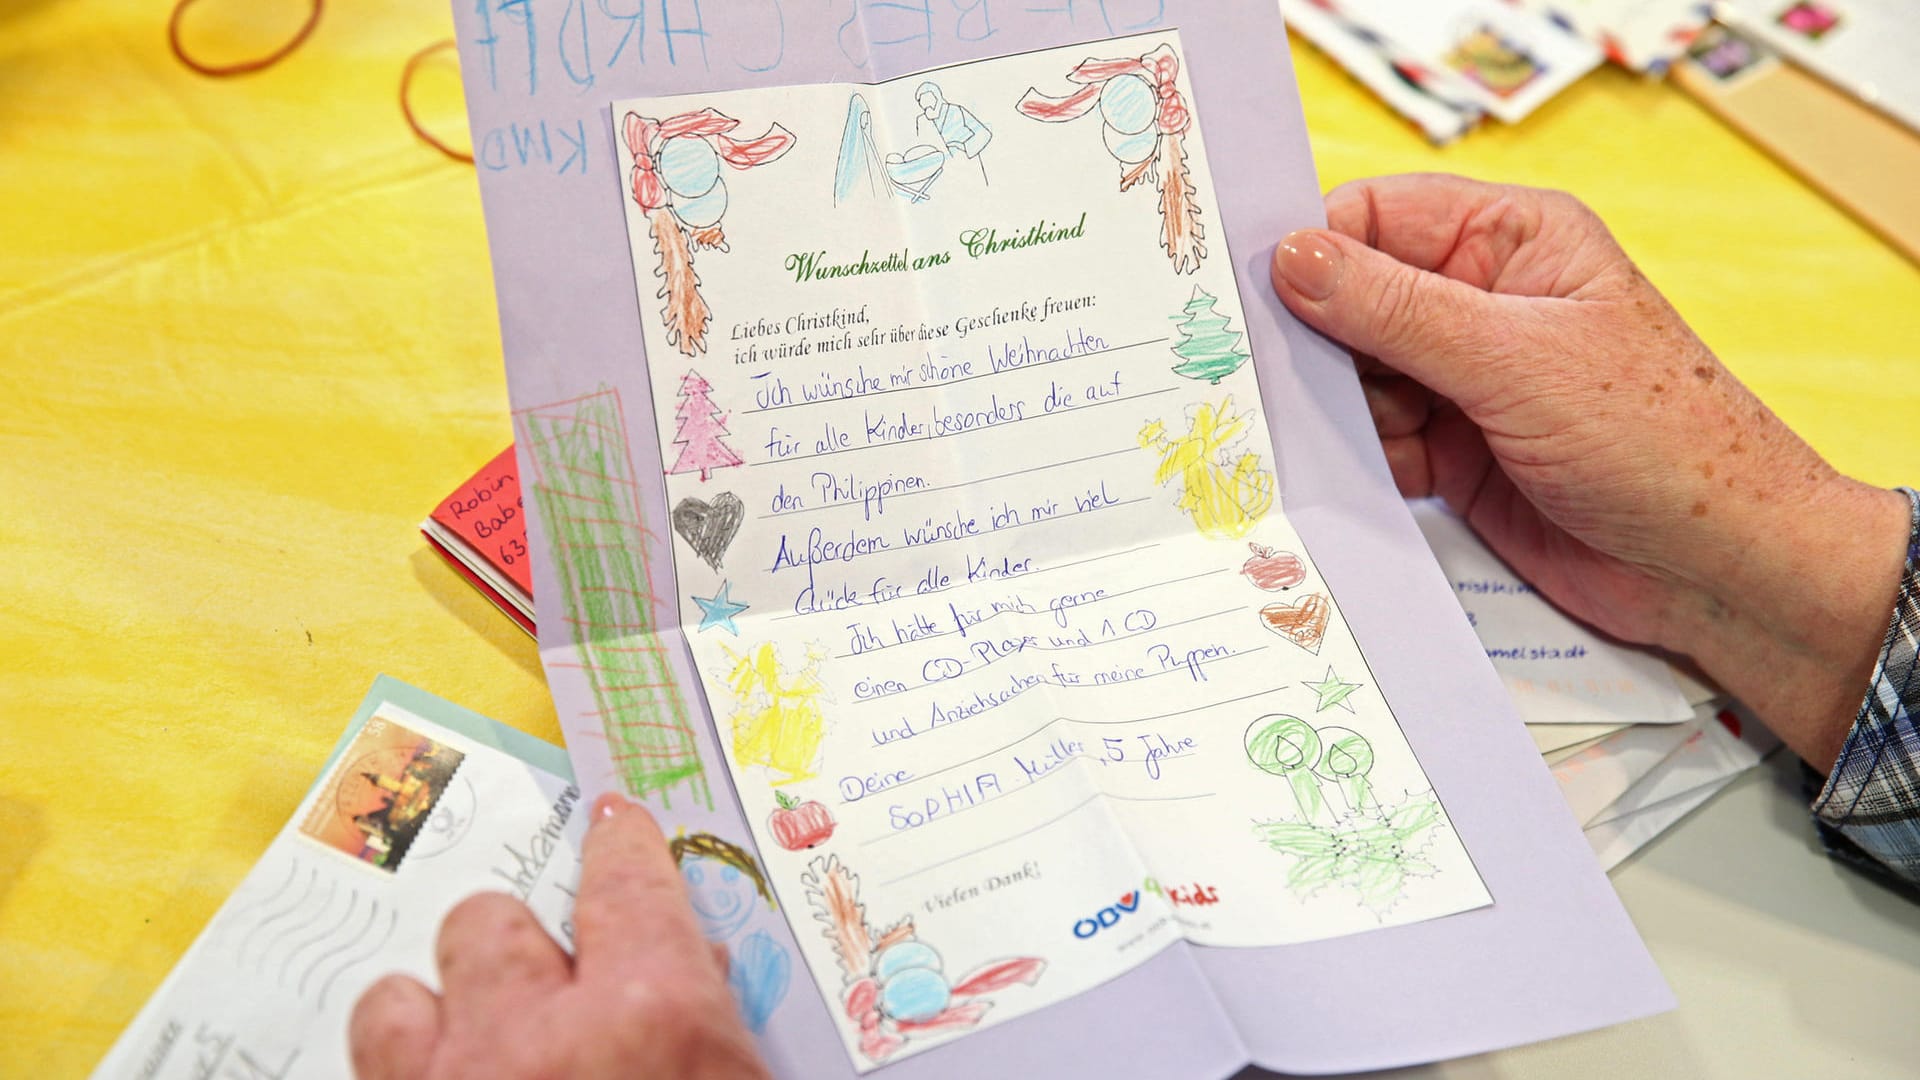 KMD
Wunschzettel ans Christkind
Liebes Christkind,
ich würde mich sehr über diese Geschenke freuen:
Ich wünsche mir schöne Weihnachten
für alle Kinder, besonders die auf
den Philippinen.
Außerdem wünsche ich mir viel
Glück für alle Kinder.
Ich hätte für mich gerne
einen CD-Player und 1 CD
und Anziehsachen für meine Puppen.
Deine
SOPHIA Müller, 5 Jahre
Vielen Dank!
ÖBV 4kids
Robin
Bab
63
ristkin
melstadt